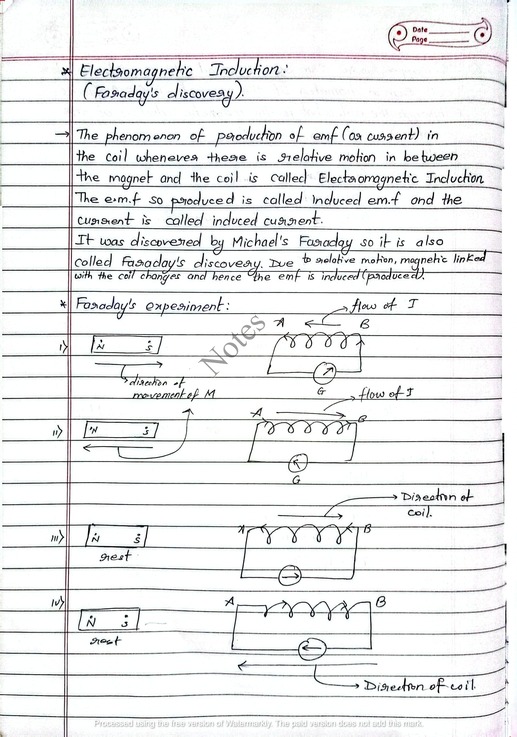 Date
Page
* Electromagnetic Induction:
(Faraday's discovery).
→ The phenomenon of production of emf (or current) in
the coil whenever there is relative motion in between
the magnet and the coil is called Electromagnetic Induction
The e.m.f so produced is called Induced em.f and the
current is called induced current.
It was discovered by Michael's Faraday so it is also
called Faraday's discovery. Due to relative motion, magnetic linked
with the coil changes and hence the emf is induced (produced)
* Faraday's experiment:
Notes
flow of I
A B
i> N S
G
direction of
movement of M
flow of I
A B
ii> N S
G
Direction of
coil.
A B
iii> N S
rest
iv> A B
N S
rest
Direction of coil.
Processed using the free version of Watermarkly. The paid version does not add this mark.